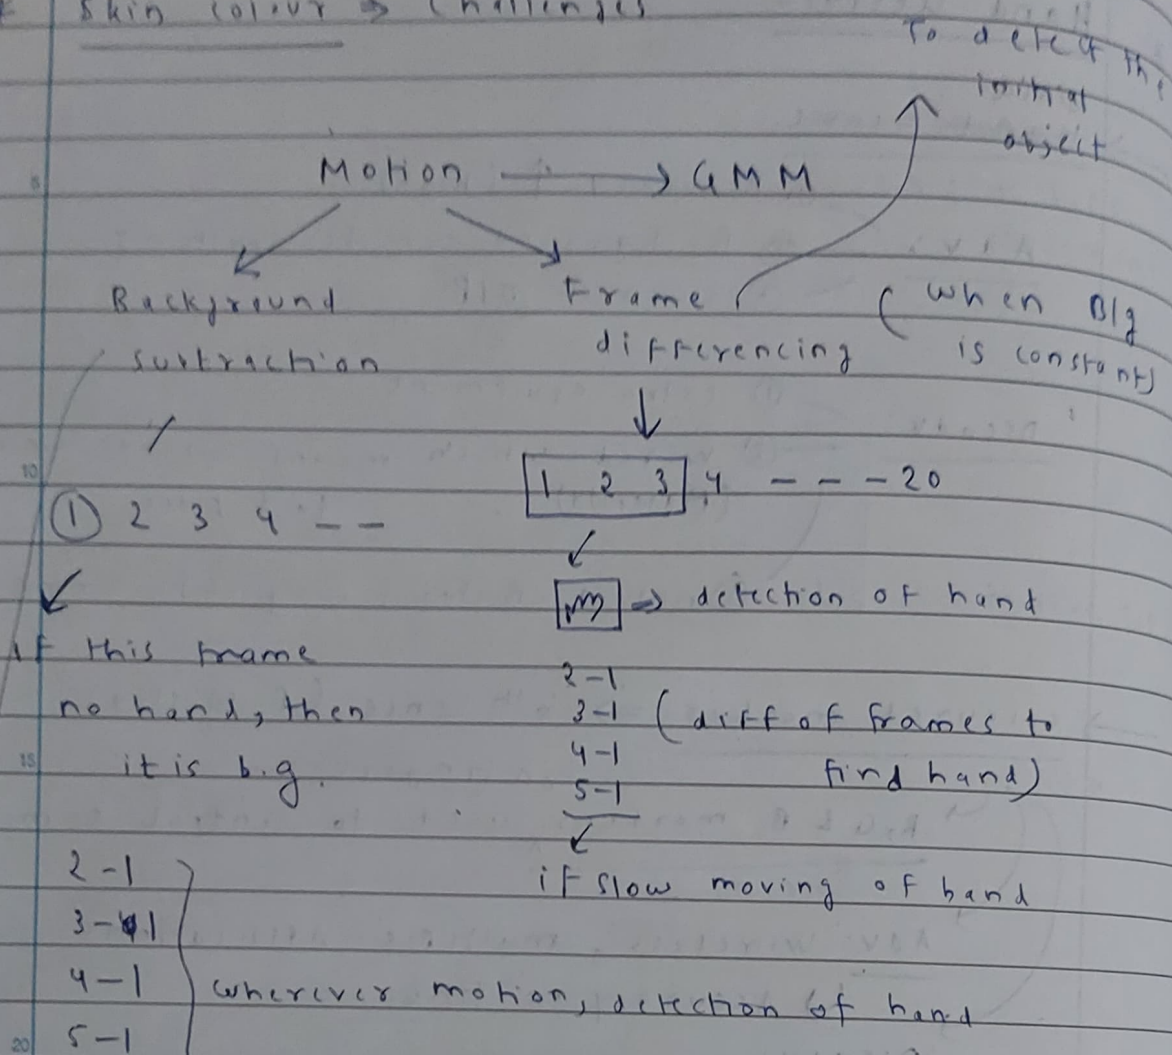 Skin colour ⇒ Challenges
To detect the
initial
object
Motion → GMM
Background
subtraction
Frame
differencing
(when B/g
is constant)
1 2 3 4 - - - 20
① 2 3 4 - -
m ⇒ detection of hand
If this frame
no hand, then
it is b.g.
2-1
3-1
4-1
5-1
(diff of frames to
find hand)
if slow moving of hand
2-1
3-1
4-1
5-1
wherever motion, detection of hand